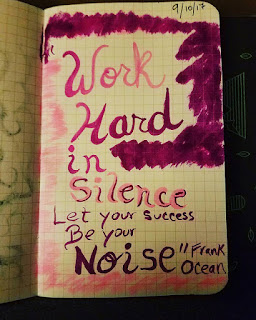 9/10/17
"Work
Hard
in
Silence
Let your Success
Be your
Noise" Frank
Ocean